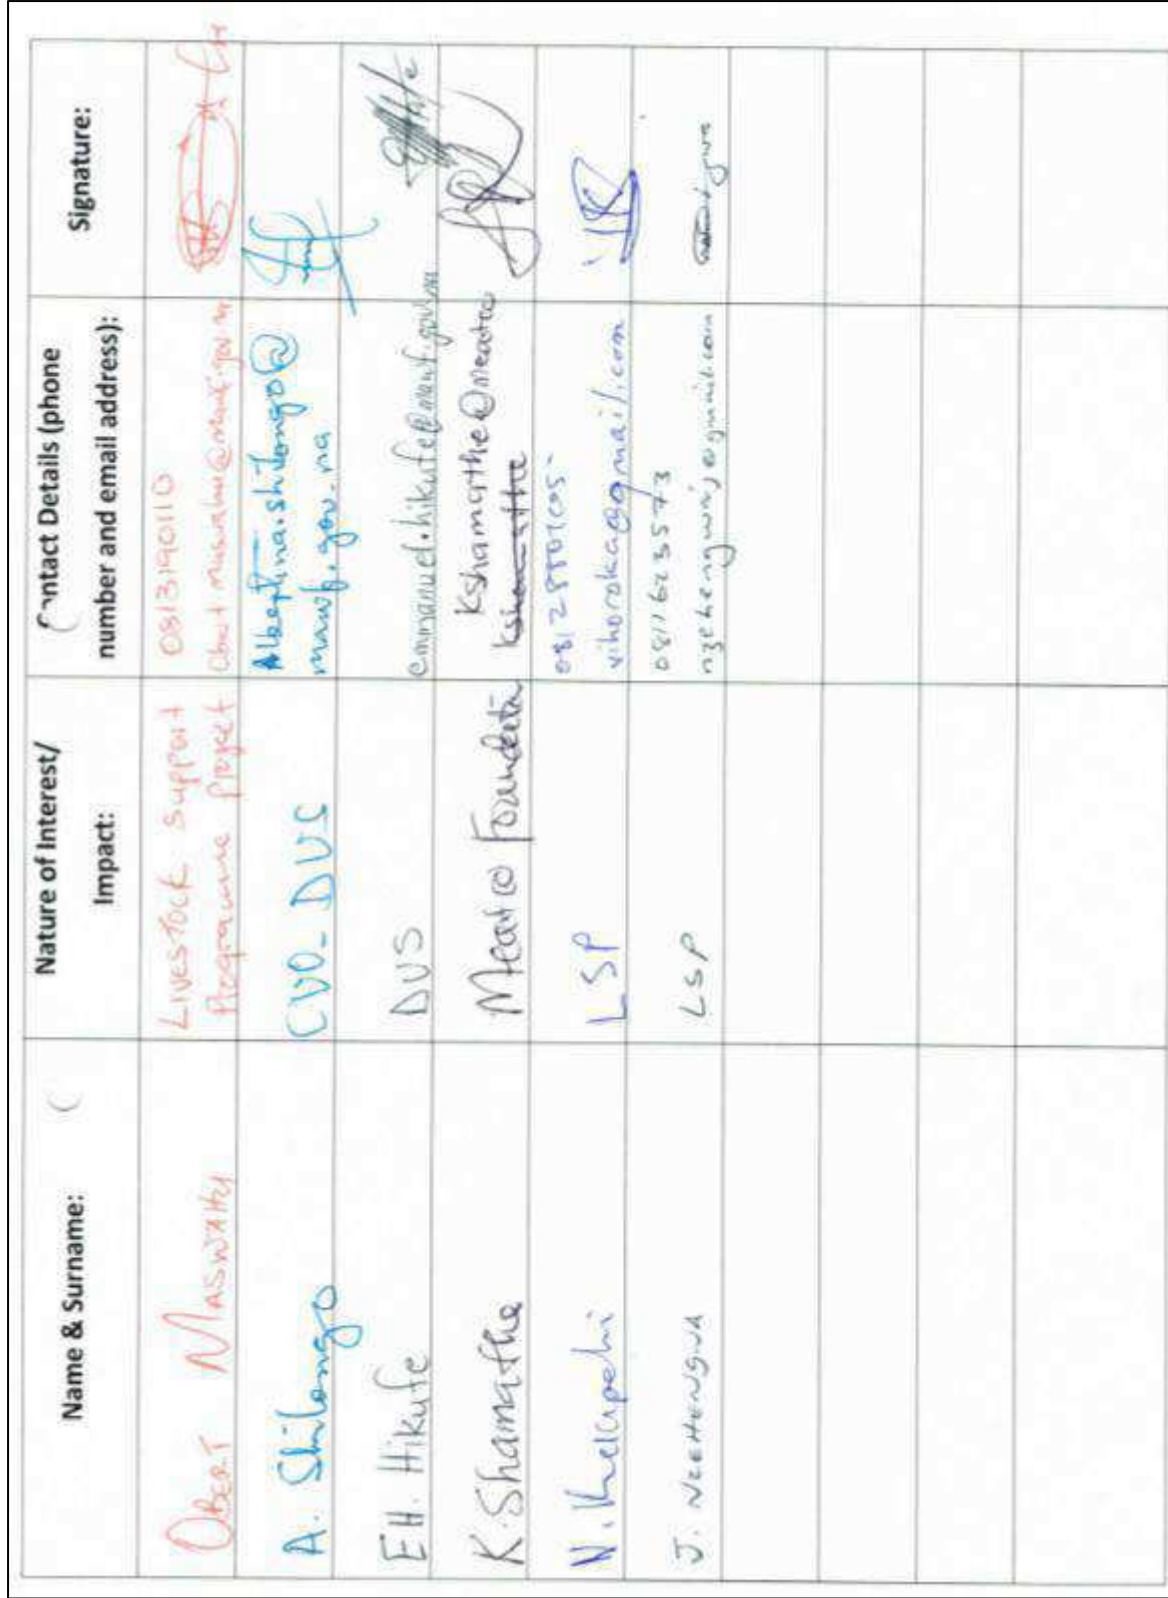 Name & Surname:
Nature of Interest/
Impact:
Contact Details (phone
number and email address):
Signature:
OBERT MASWAHU
LIVESTOCK SUPPORT
Programme project
0813190110
A. Shilongo
CVO-DVS
Albeptina.shilongo@
mawf.gov.na
EH. Hikufe
DVS
emmanuel.hikufe@mawf.gov.na
K. Shamathe
Meatco Foundation
Kshamathe@meatco
LSP
vihoroka@gmail.com
J. NZEHENGWA
LSP
0811623573